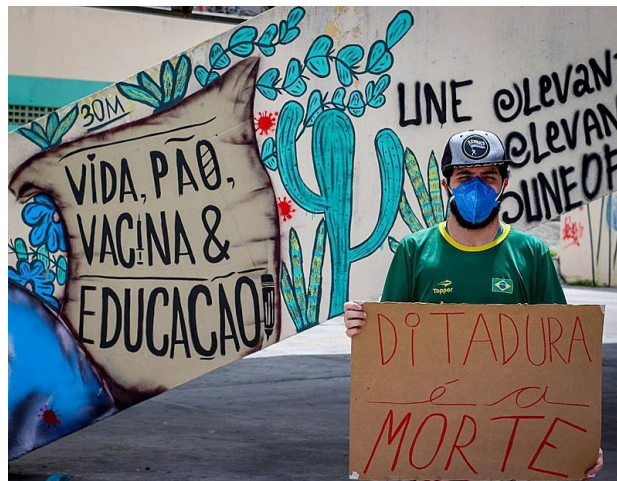 30M
VIDA, PÃO,
VACINA &
EDUCAÇAO
UNE
@LEVAN
@LEVAN
@UNEOF
Topper
DiTADURA
é a
MORTE